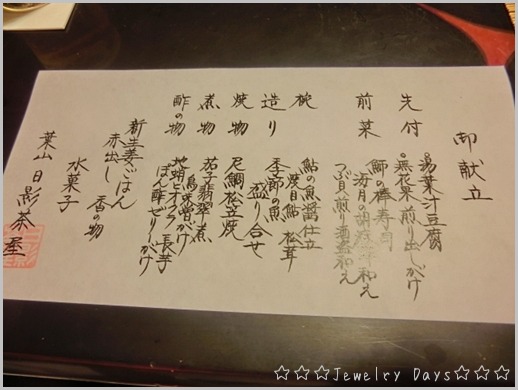 御献立
先付 湯葉汁豆腐
無花果煎り出しがけ
前菜 鰤の棒寿司
海月の胡麻酢和え
つぶ貝煎り酒盗和え
椀 鮎の魚醤仕立
焼目鮎 松茸
造り 季節の魚
盛り合せ
焼物 尼鯛松笠焼
煮物 茄子翡翠煮
鳥味噌がけ
酢の物 地蛸とオクラ 長芋
ぽん酢ゼリーがけ
新生姜ごはん
赤出し 香の物
水菓子
葉山 日影茶屋
☆☆☆Jewelry Days☆☆☆